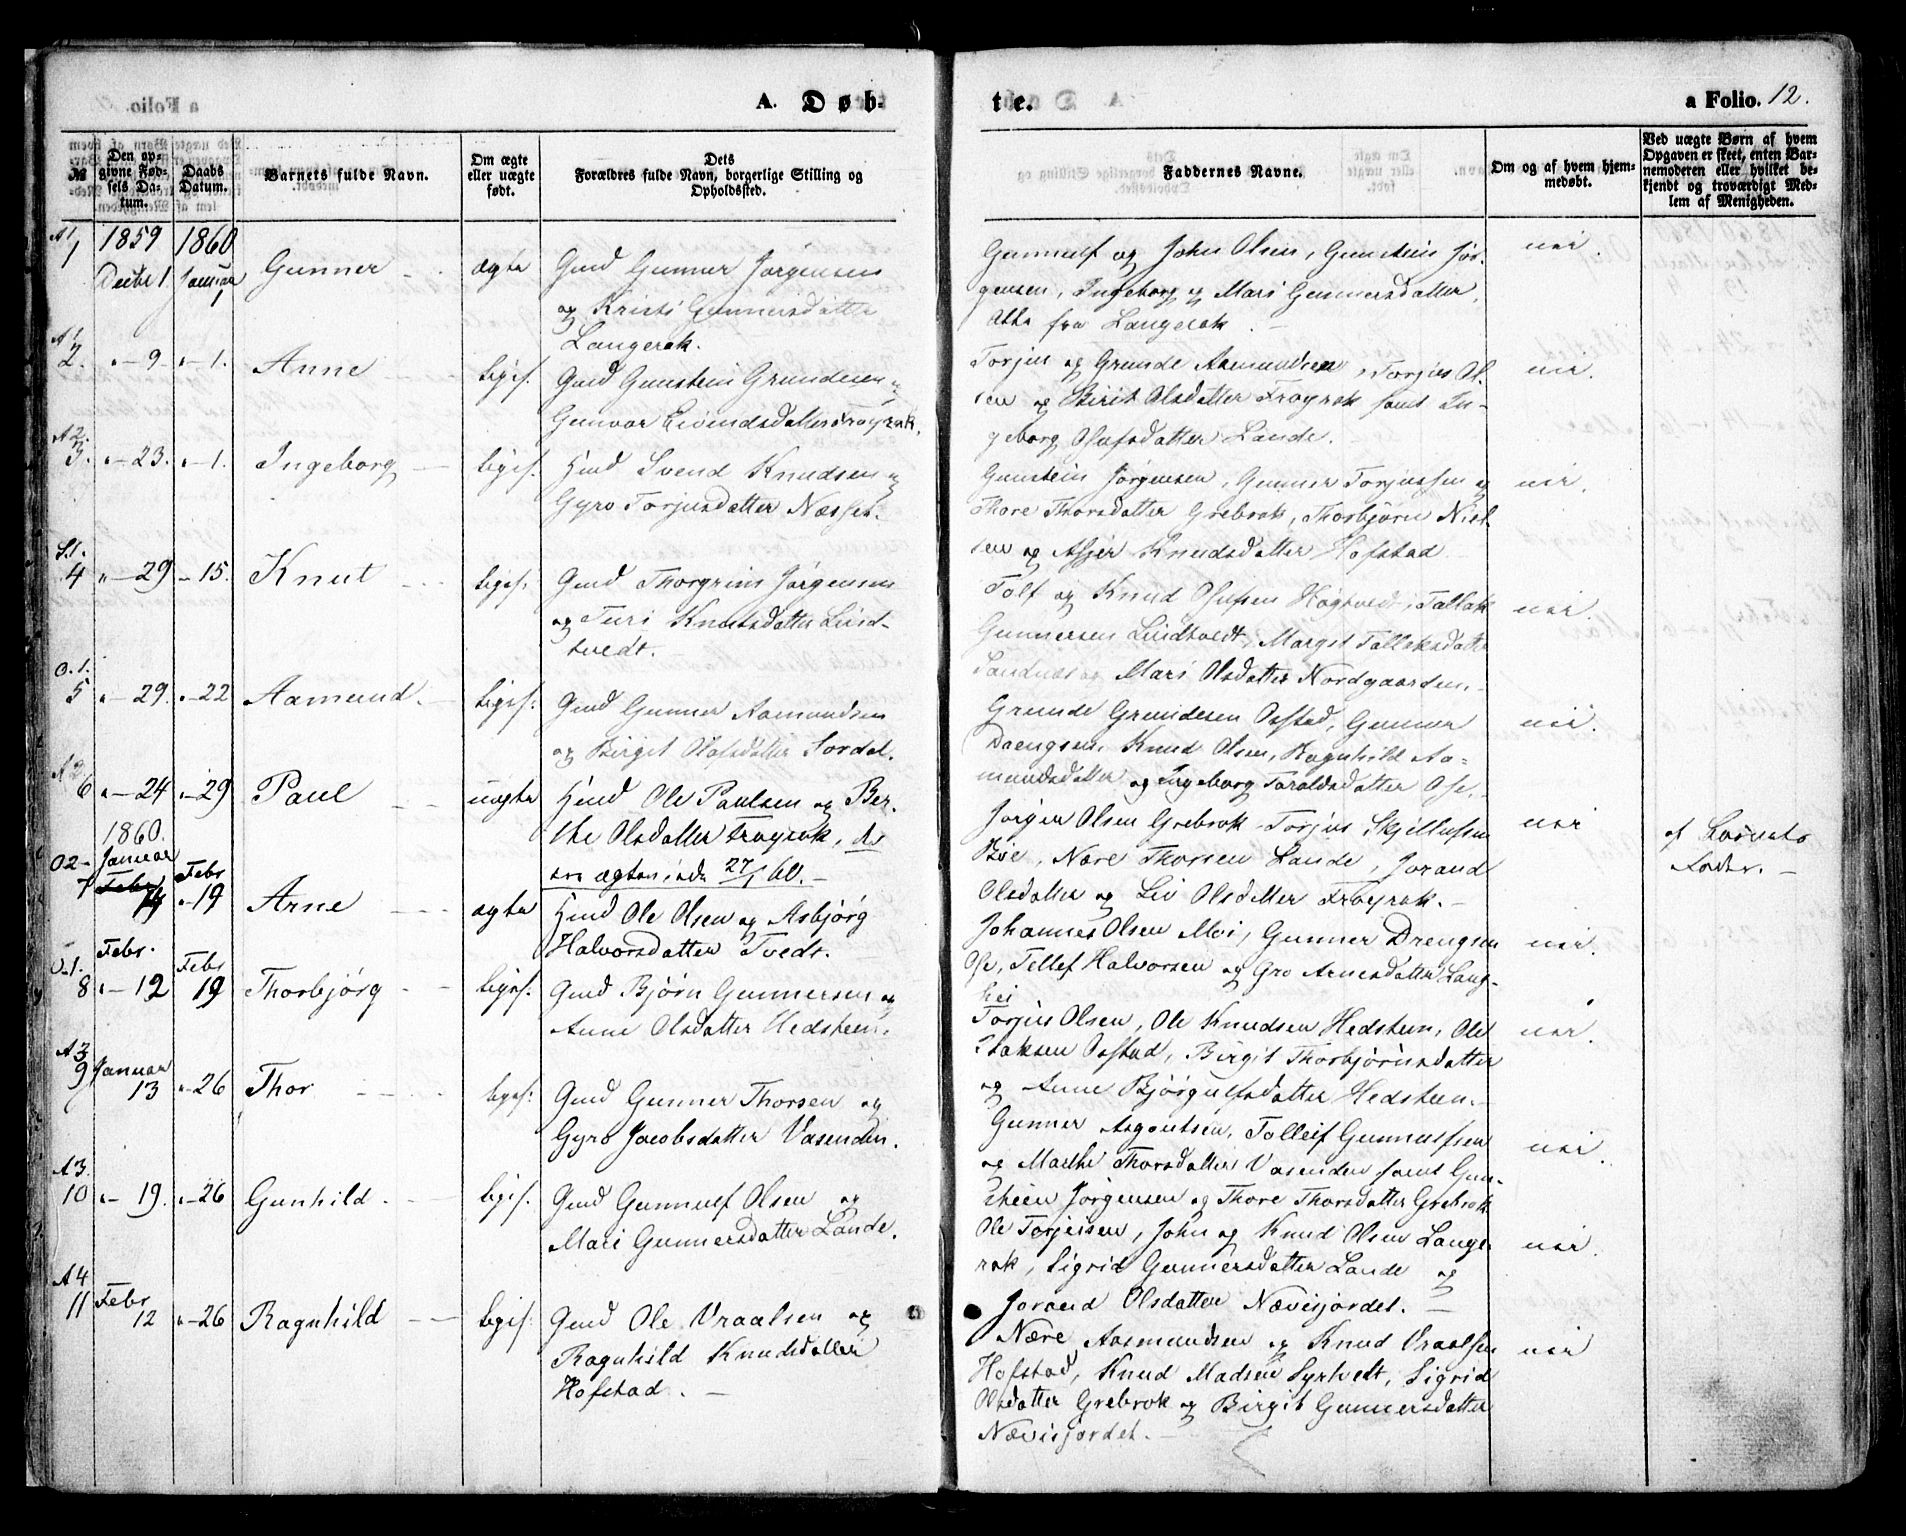 A. Døb-
te.
a Folio. 12.
№
Den op-
givne Fød-
sels Da-
tum.
Daabs
Datum.
Barnets fulde Navn.
Om ægte
eller uægte
født.
Dets
Forældres fulde Navn, borgerlige Stilling og
Opholdssted.
Faddernes Navne.
Om og af hvem hjem-
medøbt.
Ved uægte Børn af hvem
Opgaven er skeet, enten Bar-
nemoderen eller hvilket be-
kjendt og troværdigt Med-
lem af Menigheden.
A1.
1
1859
Decbr 1.
1860
Januar
1
Gunner
ægte
Gmd Gunner Jørgensen
og Kristi Gunnersdatter
Langerak.
Gunnulf og John Olsen, Gunstein Jør-
gensen, Ingeborg og Mari Gunnersdatter,
alle fra Langerak.
nei.
A1.
2.
" - 9
" - 1.
Anne
liges.
Gmd Gunstein Grundesen og
Gunvor Eivindsdatter Frøyrak.
Torjus og Grunde Aasmundsen, Torjus Ol-
sen og Birit Olsdatter Frøyrak samt In-
geborg Olufsdatter Lande.
nei.
A2.
3.
" - 23.
" - 1.
Ingeborg
liges.
Hmd Svend Knudsen og
Gyro Torjusdatter Næsset.
Gunstein Jørgensen, Gunner Torjussen og
Thore Thorsdatter Grebrok, Thorbjørn Niel-
sen og Asjer Knudsdatter Hofstad
nei.
S.1.
4
" - 29
" - 15.
Knut
liges.
Gmd Thorgrim Jørgensen
og Turi Knutsdatter Lind-
tvedt.
Tolf og Knud Olufsen Høgtvedt, Tallak
Gunnersen Lindtvedt, Margit Tallaksdatter
Sandnes og Mari Olsdatter Nordgaarden.
nei.
O.1.
5
" - 29.
" - 22
Aamund.
ligis.
Gmd Gunner Aamundsen
og Birgit Olafsdatter Sordal.
Grunde Grundesen Ostad, Gunner
Drengsen, Knud Olsen, Ragnhild Aa-
mundsdatter og Ingeborg Taraldsdatter Ose.
nei.
A2
6
" - 24
" - 29
Paul
uægte
Hmd Ole Paulsen og Ber-
the Olsdatter Frøyrak, de
ere ægteviede 27/1 60.
Jørgen Olsen Grebrok, Torjus Skjellufsen
Bøe, Nære Thorsen Lande, Jorand
Olsdatter og Liv Olsdatter Frøyrak.
nei
af Barnets
Fader.
O2-
7
1860.
Januar
Febr
14
Febr
" - 19
Arne
ægte
Hmd Ole Olsen og Asbjørg
Halvorsdatter Tvedt.
Johannes Olsen Moi, Gunner Drengsen
Ose, Tellef Halvorsen og Gro Arnesdatter Lang-
hei
nei.
O.1.
8
Febr.
" - 12
Febr
19
Thorbjørg
ligis.
Gmd Bjørn Gunnersen og
Anne Olsdatter Hedsteen.
Torjus Olsen, Ole Knudsen Hedsteen, Ole
Isaksen Ostad, Birgit Thorbjørnsdatter
og Anne Bjørgulfsdatter Hedsteen.
nei.
A3
9
Januar
13
" - 26
Thor
ligis.
Gmd Gunner Thorsen og
Gyro Jacobsdatter Vasenden.
Gunner Aagoutsen, Tolleif Gunnulfsen
og Marthe Thorsdatter Vasenden samt Gun-
steen Jørgensen og Thore Thorsdatter Grebrok
nei.
A3.
10
" - 19.
" - 26
Gunhild
ligis.
Gmd Gunnulf Olsen og
Mari Gunnersdatter Lande.
Ole Torjussen, John og Knud Olsen Lange-
rak, Sigrid Gunnersdatter Lande og
Joraand Olsdatter Nævisjordet.
nei.
A4
11
Febr
12
" - 26
Ragnhild
ligis.
Gmd Ole Vraalsen og
Ragnhild Knudsdatter
Hofstad.
Nære Aasmundsen og Knud Vraalsen
Hofstad, Knud Madsen Syrtvedt, Sigrid
Olsdatter Grebrok og Birgit Gunnersdatter
Nævisjordet.
nei